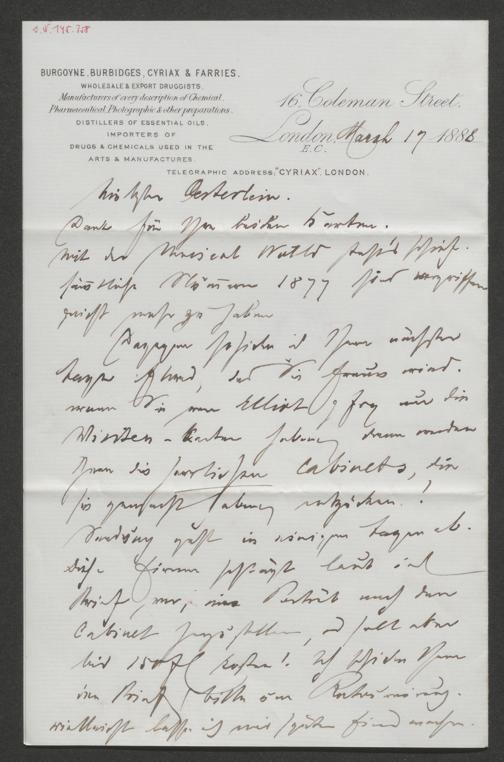 BURGOYNE, BURBIDGES, CYRIAX & FARRIES.
WHOLESALE & EXPORT DRUGGISTS.
Manufacturers of every description of Chemical,
Pharmaceutical, Photographic & other preparations.
DISTILLERS OF ESSENTIAL OILS.
IMPORTERS OF
DRUGS & CHEMICALS USED IN THE
ARTS & MANUFACTURES.
16, Coleman Street,
London, March 17 1888
E.C.
TELEGRAPHIC ADDRESS, "CYRIAX". LONDON.
Oesterlein.
Dank für Ihre beiden Karten.
Mit der Musical World steht's schief.
sämtliche Nummern 1877 sind vergriffen
nicht mehr zu haben
Dagegen schicke ich Ihnen nächster
Tage Etwas, das Sie freuen wird.
wenn Sie von Elliot & Fry nur die
Visiten-Karten haben, dann werden
Ihnen die herrlichen Cabinets, die
sie gemacht haben, entzücken!
Sendung geht in einigen Tagen ab.
Diese Firma schlägt laut
Brief vor, eine Porträt nach dem
Cabinet herzustellen, soll aber
kosten! Ich schicke Ihnen
den Brief, bitte um Retournirung.
vielleicht lässt sich später